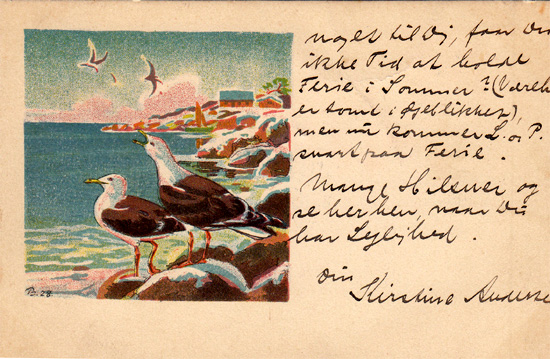 noget til Dig, faar Du
ikke Tid at holde
Ferie i Sommer? (Værels
er tomt i Øjeblikket),
men nu kommer L. og P.
snart paa Ferie.
Mange Hilsner og
se her hen, naar Du
har Lejlighed.
din
Kirstine Anderse
28